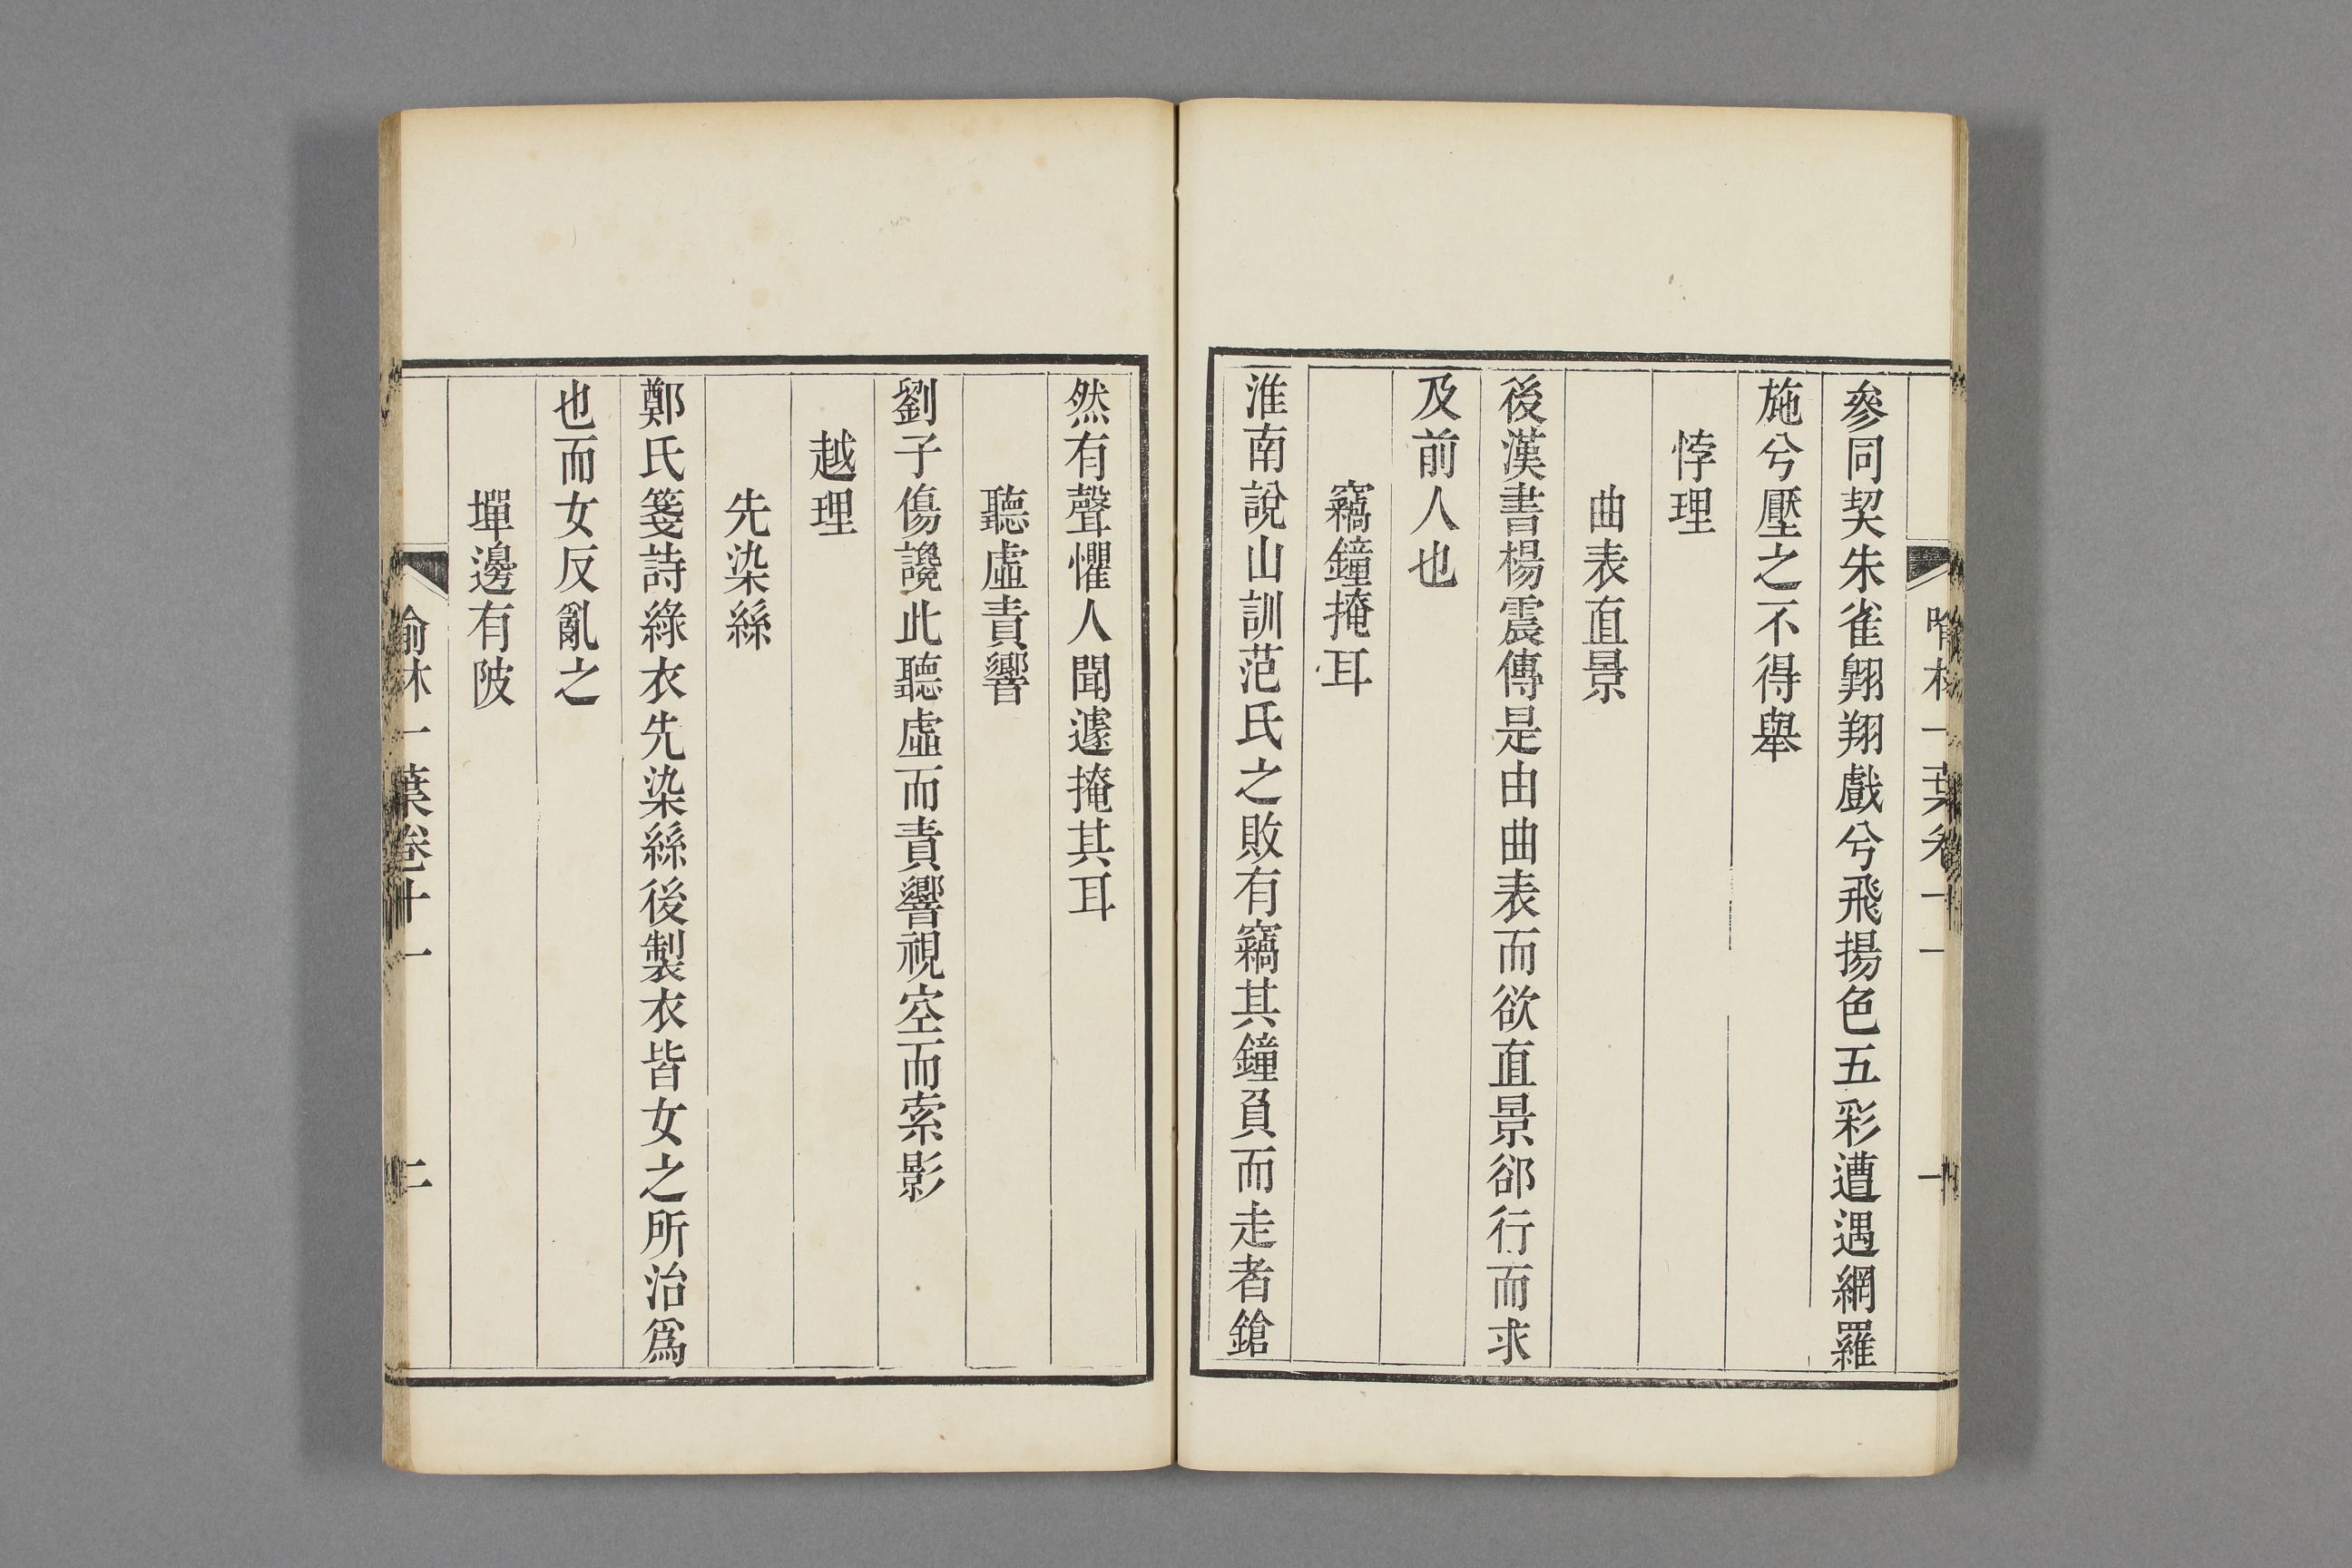 參同契朱雀翺翔戲兮飛揚色五彩遭遇網羅
施兮壓之不得舉
悖理
曲表直景
後漢書楊震傳是由曲表而欲直景郤行而求
及前人也
竊鐘掩耳
淮南說山訓范氏之敗有竊其鐘負而走者鎗
然有聲懼人聞遽掩其耳
聽虛責響
劉子傷讒此聽虛而責響視空而索影
越理
先染絲
鄭氏箋詩綠衣先染絲後製衣皆女之所治爲
也而女反亂之
墠邊有陂
喻林一葉卷十一
二